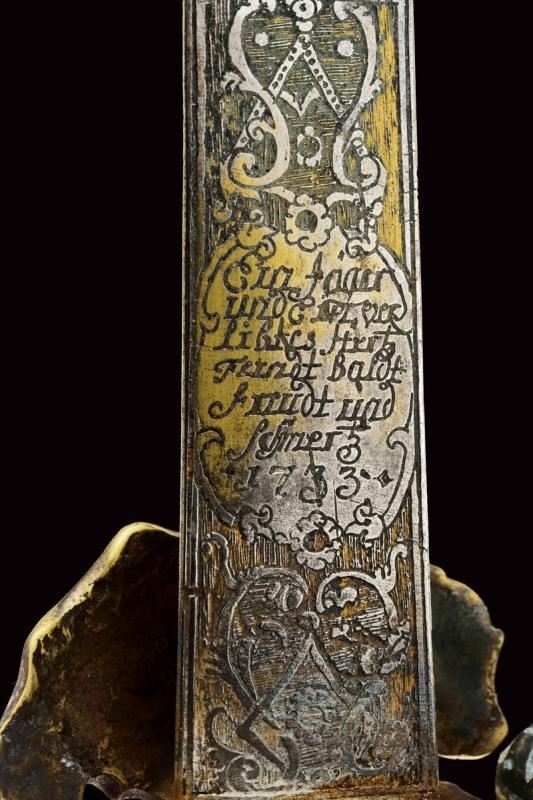 Ein Jäger
und Ein Ver
libtes Hertz
Fendt Baldt
Freudt und
schmertz
1733